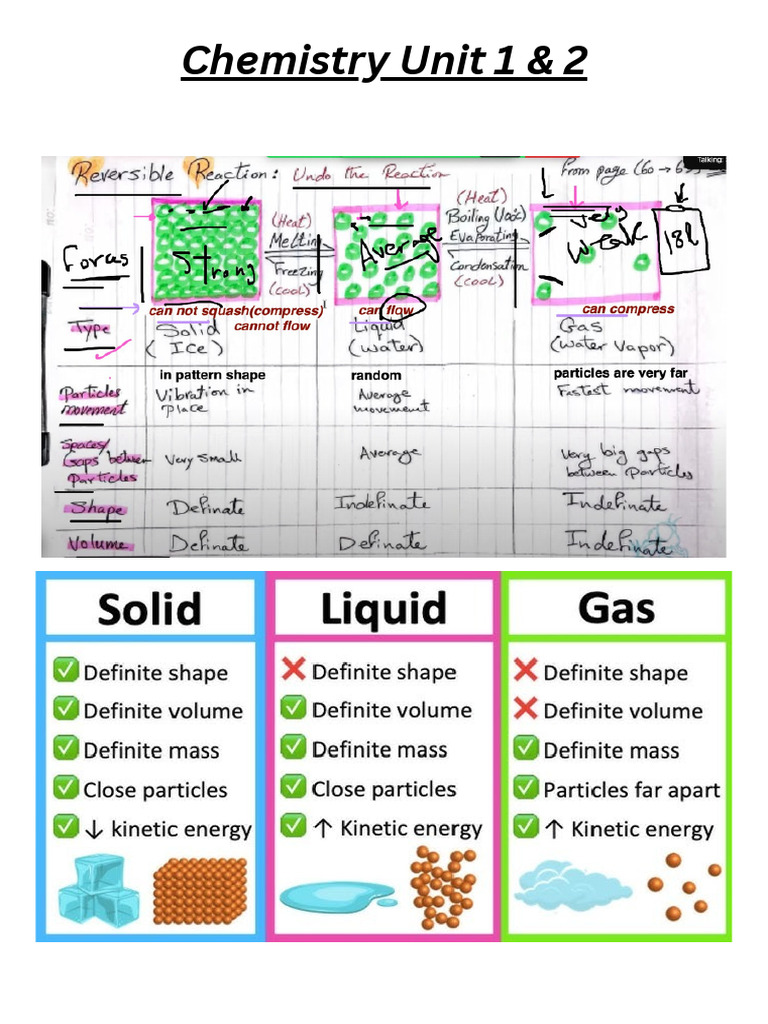 Chemistry Unit 1 & 2
Talking:
Reversible Reaction: Undo the Reaction
From page (60 →
(Heat)
Melting
Freezing
(cool)
(Heat)
Boiling
Evaporating
Condensation
(cool)
Forces
Strong
Average
Very
Weak
can not squash(compress)
cannot flow
can flow
can compress
Type
Solid
(Ice)
Liquid
(Water)
Gas
(Water Vapor)
in pattern shape
random
particles are very far
Particles
movement
Vibration in
Place
Average
movement
Fastest movement
Spaces/
Gaps between
Particles
Very Small
Average
Very big gaps
between Particles
Shape
Definate
Indefinate
Indefinate
Volume
Definate
Definate
Indefinate
Solid
Definite shape
Definite volume
Definite mass
Close particles
↓ kinetic energy
Liquid
Definite shape
Definite volume
Definite mass
Close particles
↑ Kinetic energy
Gas
Definite shape
Definite volume
Definite mass
Particles far apart
↑ Kinetic energy